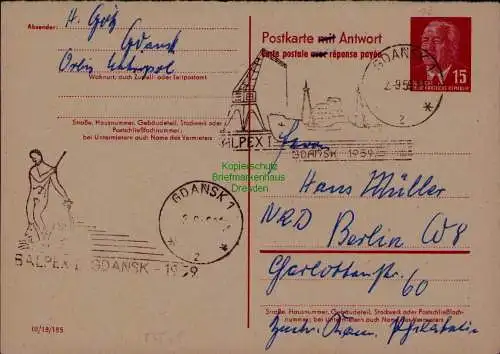 Absender:
H. Götz
Gdańsk
Orbis
Wohnort, auch Zustell- oder Leitpostamt
Straße, Hausnummer, Gebäudeteil, Stockwerk oder
Postschließfachnummer;
bei Untermietern auch Name des Vermieters
BALPEX I GDAŃSK - 1959
GDAŃSK 1
2
III/18/185
Postkarte mit Antwort
Carte postale avec réponse payée
15
DEUTSCHE DEMOKRATISCHE REPUBLIK
GDAŃSK 1
2
BALPEX I
GDAŃSK - 1959
Herrn
Hans Müller
NRD Berlin W8
Charlottenstr. 60
Straße, Hausnummer, Gebäudeteil, Stockwerk oder Postschließfach-
nummer; bei Untermietern auch Name des Vermieters
Philatelie
Kopierschutz
Briefmarkenhaus
Dresden